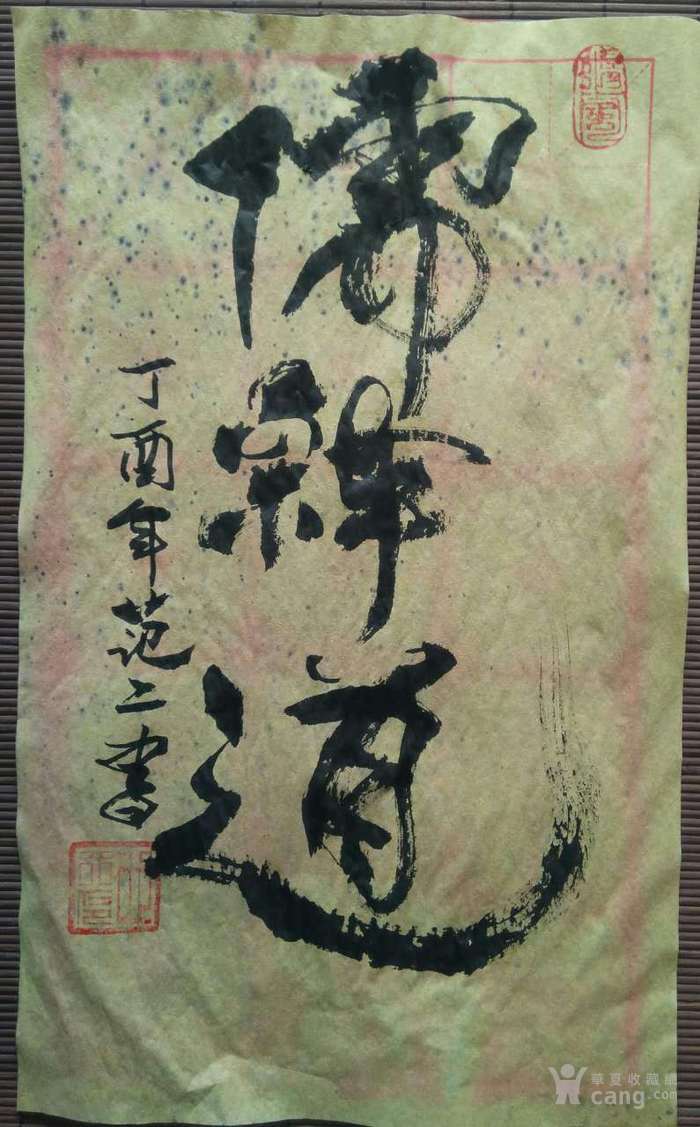 儒释道
丁酉年范二书
華夏收藏網
cang.com